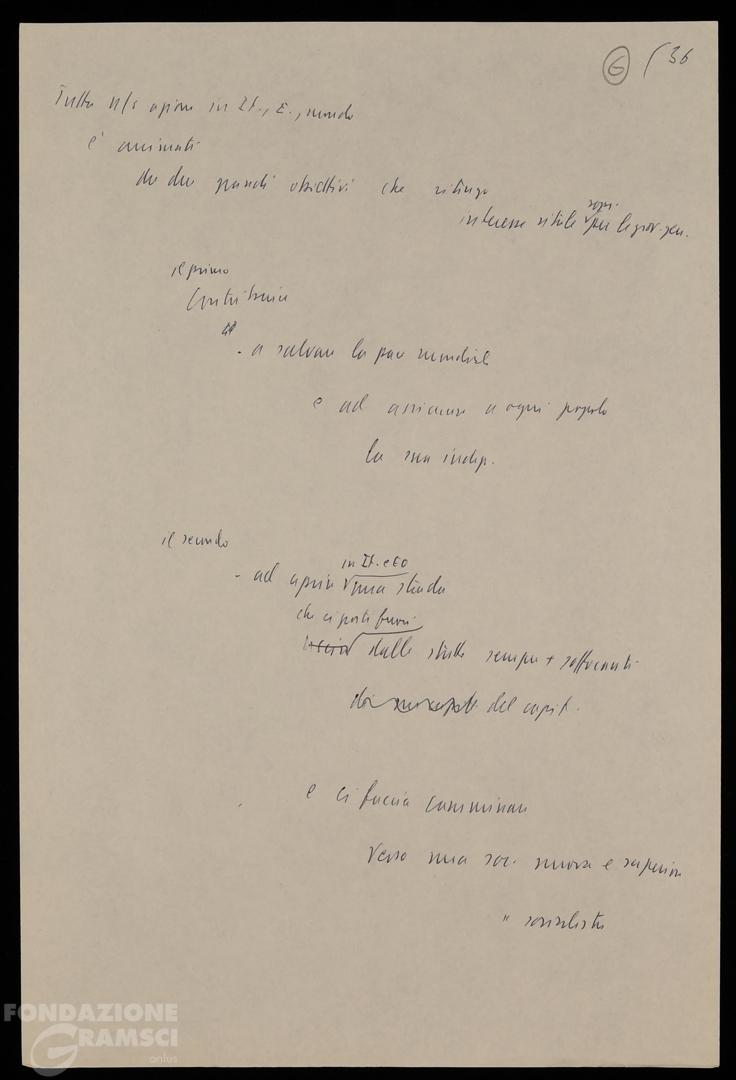 6 / 36
Tutta n/s azione in It., E., mondo
è animata
da due grandi obiettivi che ritengo
sopr.
interesse vitale per le giov. gen.
il primo
Contribuire
- a salvare la pace mondiale
e ad assicurare a ogni popolo
la sua indip.
il secondo
in It. e EO
- ad aprire una strada
che ci porti fuori
dalle strette sempre + soffocanti
del capit.
e ci faccia camminare
verso una soc. nuova e superiore
" socialista
FONDAZIONE
GRAMSCI
onlus